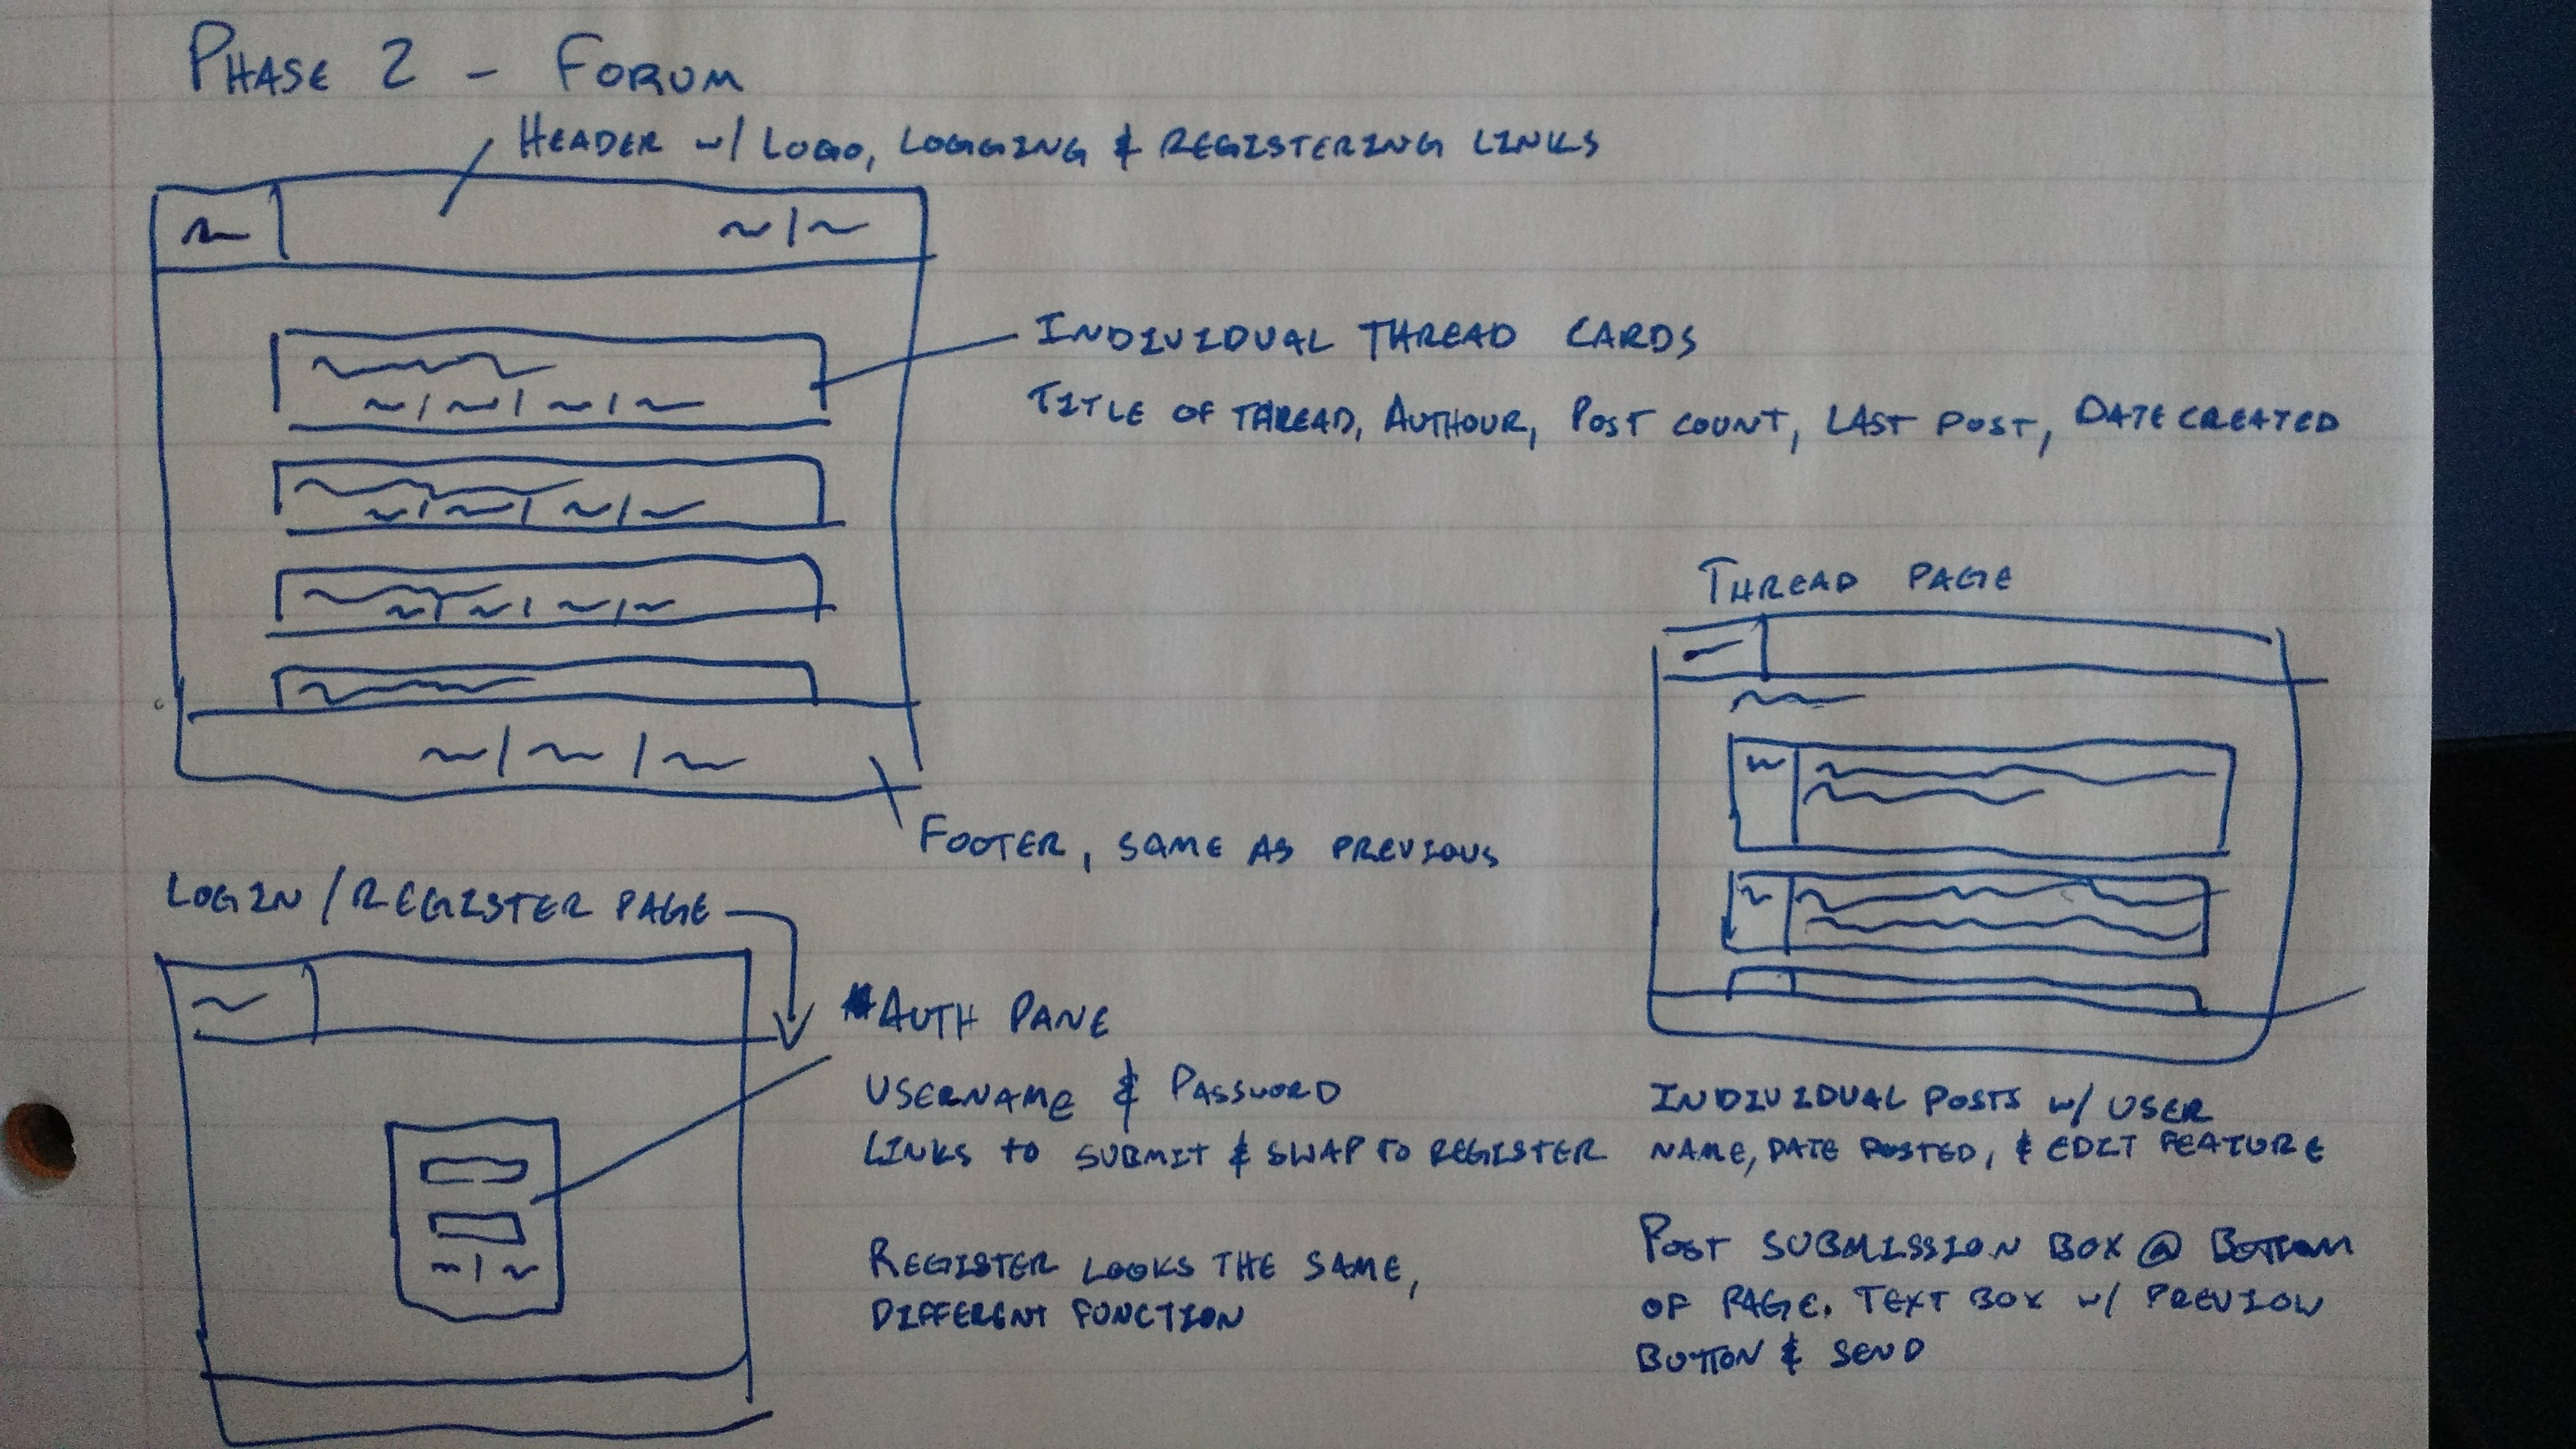 PHASE 2 - FORUM
HEADER w/ LOGO, LOGGING & REGISTERING LINKS
INDIVIDUAL THREAD CARDS
TITLE OF THREAD, AUTHOUR, POST COUNT, LAST POST, DATE CREATED
FOOTER, SAME AS PREVIOUS
LOGIN / REGISTER PAGE
AUTH PANE
USERNAME & PASSWORD
LINKS TO SUBMIT & SWAP TO REGISTER
REGISTER LOOKS THE SAME,
DIFFERENT FUNCTION
THREAD PAGE
INDIVIDUAL POSTS w/ USER
NAME, DATE POSTED, & EDIT FEATURE
POST SUBMISSION BOX @ BOTTOM
OF PAGE. TEXT BOX w/ PREVIOW
BUTTON & SEND